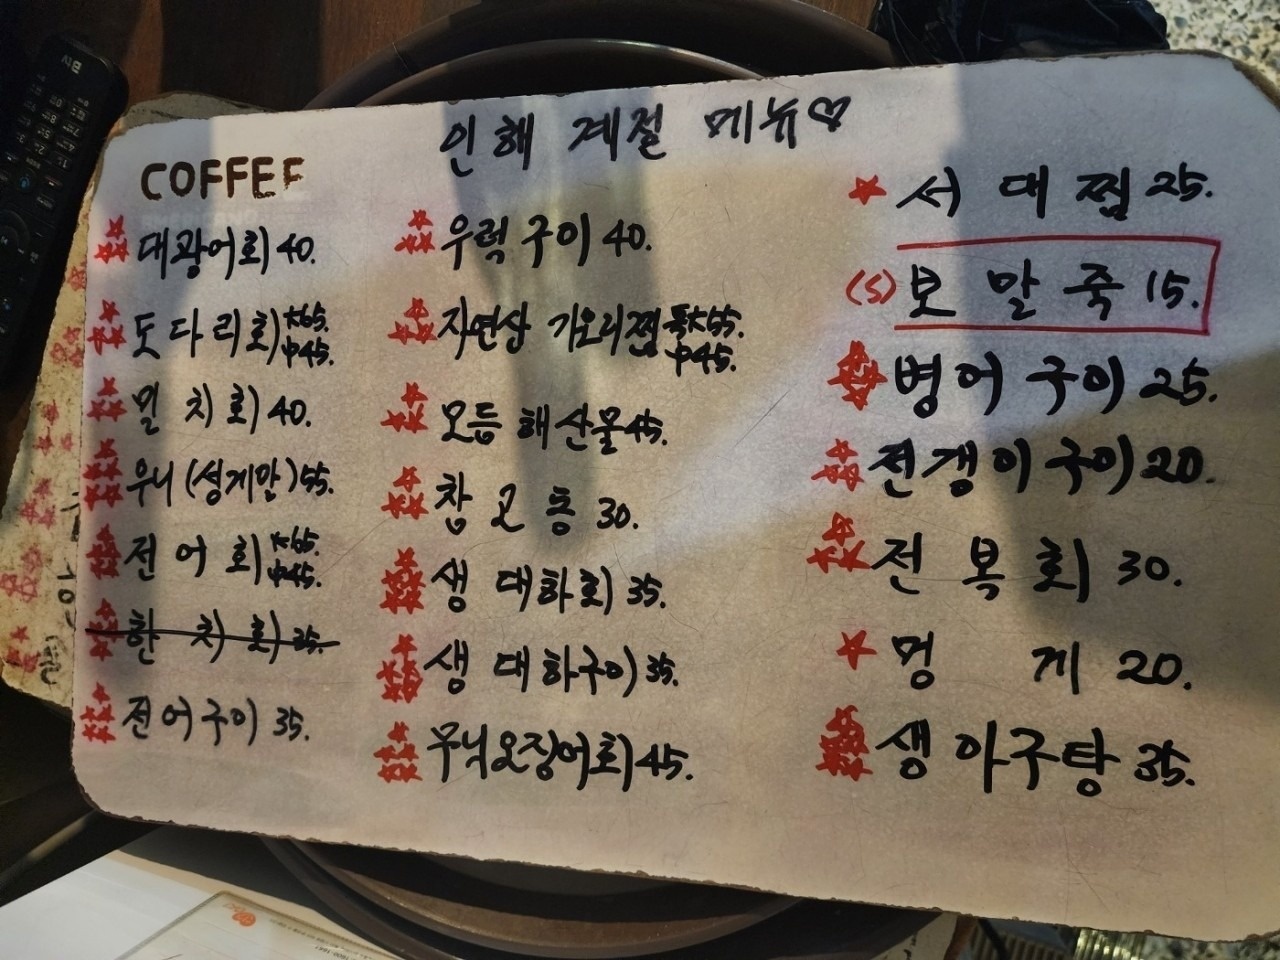 인해 계절 메뉴♡
COFFEE
대광어회 40.
도다리회 大65.
中45.
밀치회 40.
우니(성게알) 55.
전어회 大65.
中45.
한치회 35.
전어구이 35.
우럭구이 40.
자연산 가오리찜 특大55.
中45.
모듬해산물 45.
참고동 30.
생대하회 35.
생대하구이 35.
무늬오징어회 45.
서대찜 25.
(S) 보말죽 15.
병어구이 25.
전갱이구이 20.
전복회 30.
멍게 20.
생아구탕 35.
Btv